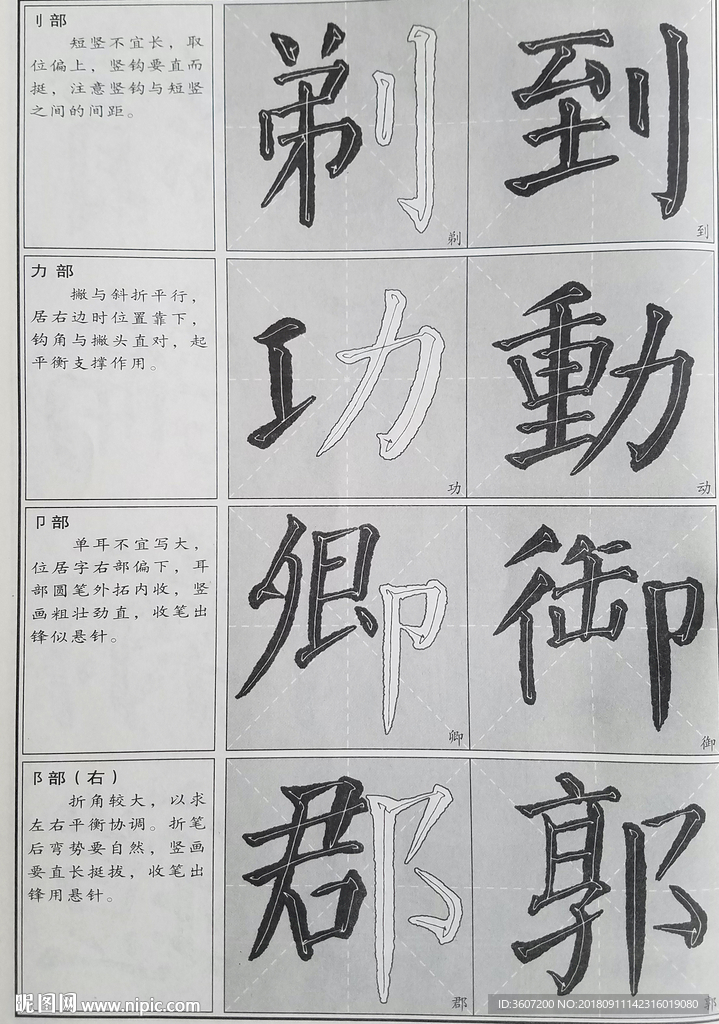 刂部
短竖不宜长，取
位偏上，竖钩要直而
挺，注意竖钩与短竖
之间的间距。
剃 到
剃 到
力部
撇与斜折平行，
居右边时位置靠下，
钩角与撇头直对，起
平衡支撑作用。
功 動
功 动
卩部
单耳不宜写大，
位居字右部偏下，耳
部圆笔外拓内收，竖
画粗壮劲直，收笔出
锋似悬针。
卿 御
卿 御
阝部（右）
折角较大，以求
左右平衡协调。折笔
后弯势要自然，竖画
要直长挺拔，收笔出
锋用悬针。
郡 郭
郡 郭
昵图网 www.nipic.com
ID:3607200 NO:20180911142316019080